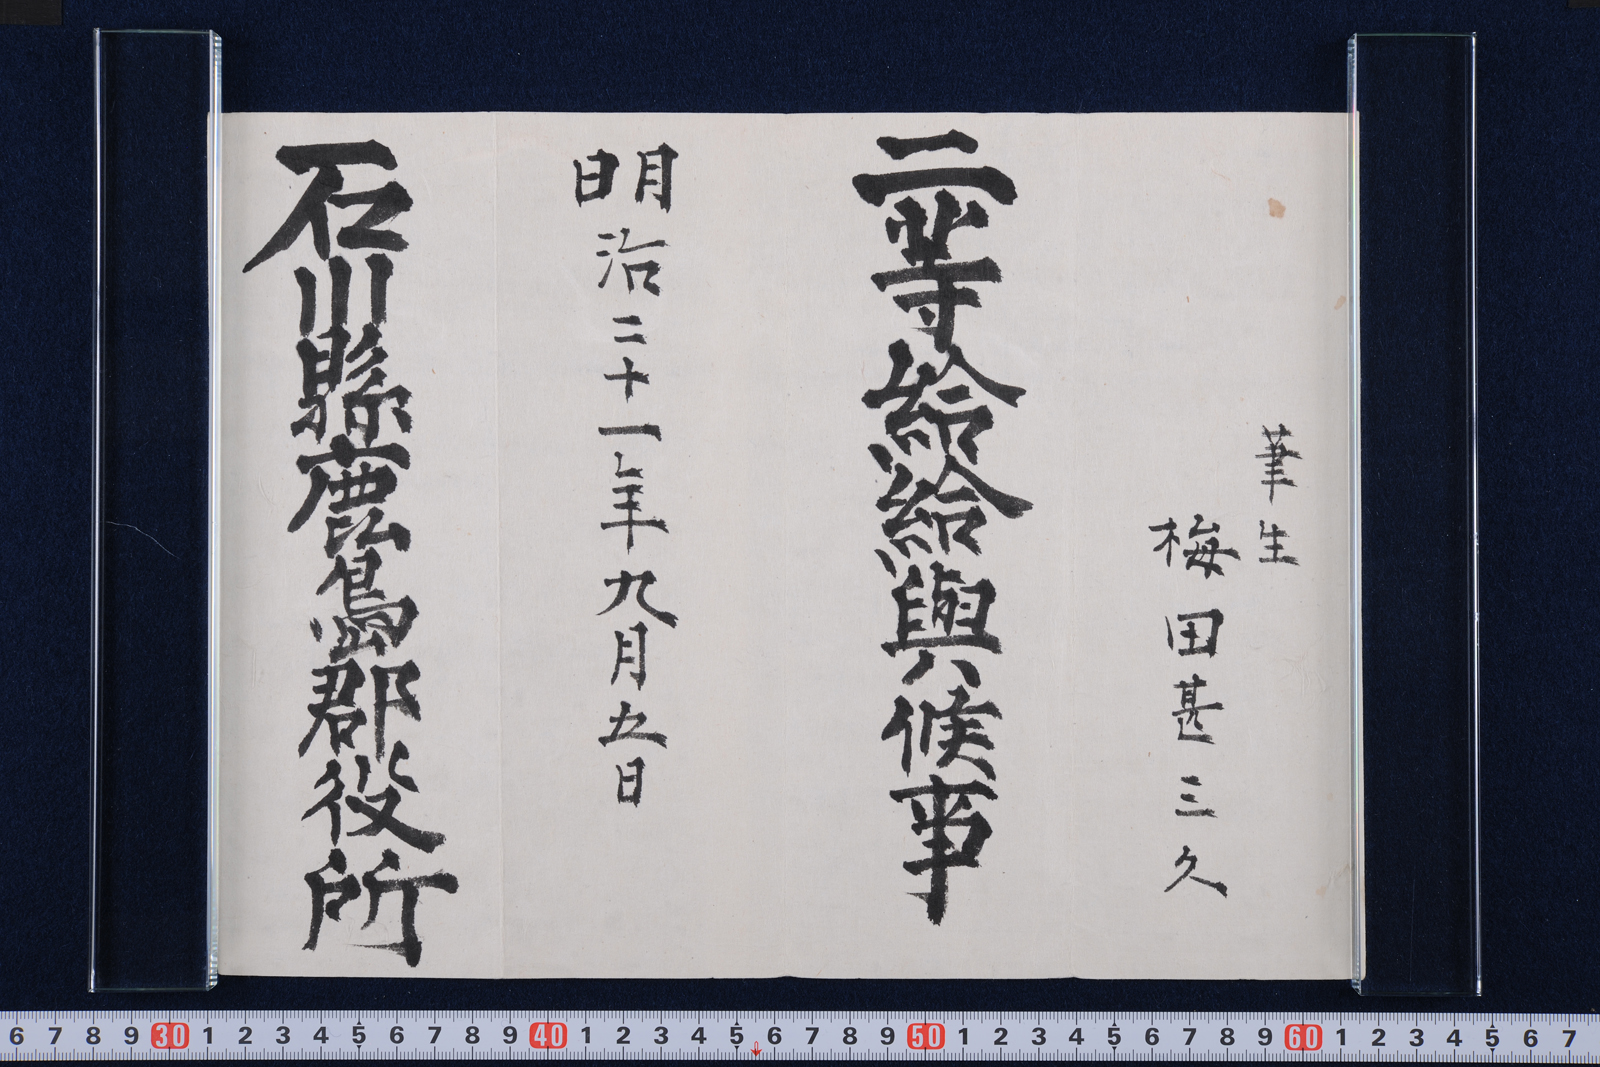 筆生
梅田甚三久
二等給給與候事
明治二十一年九月五日
石川縣鹿島郡役所
6 7 8 9 30 1 2 3 4 5 6 7 8 9 40 1 2 3 4 5 6 7 8 9 50 1 2 3 4 5 6 7 8 9 60 1 2 3 4 5 6 7